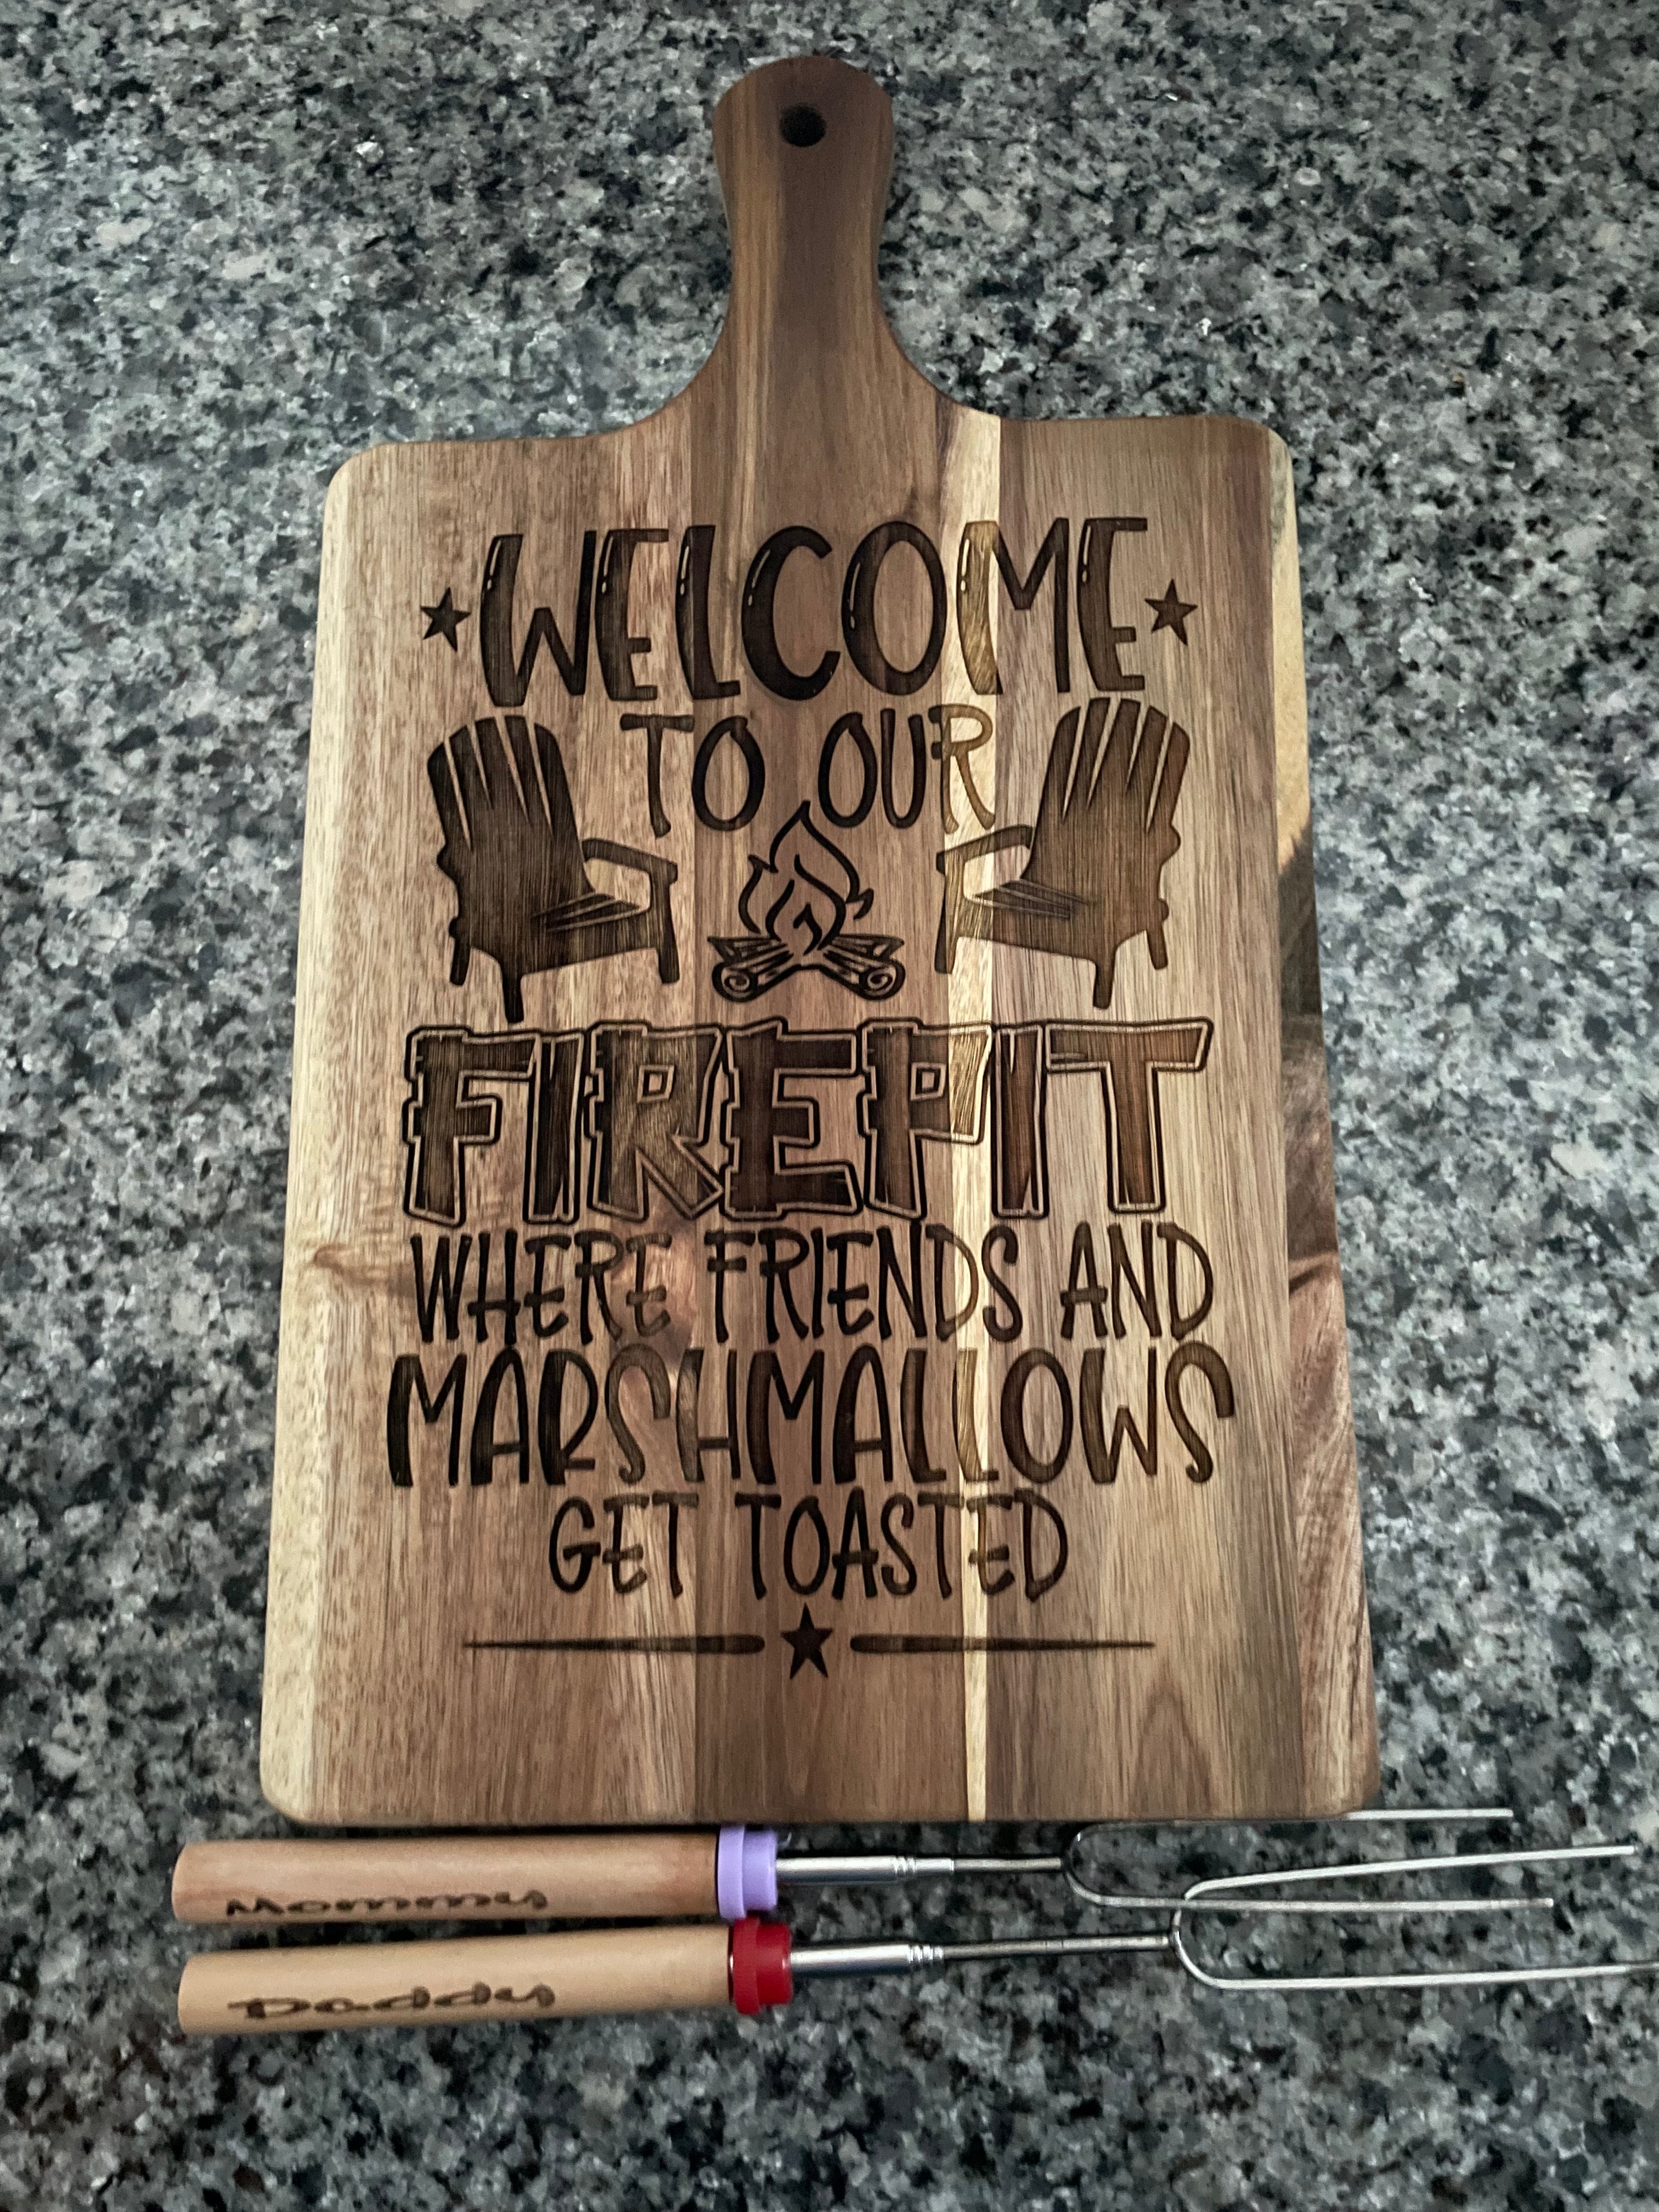 WELCOME
TO OUR
FIREPIT
WHERE FRIENDS AND
MARSHMALLOWS
GET TOASTED
Mommy
Daddy